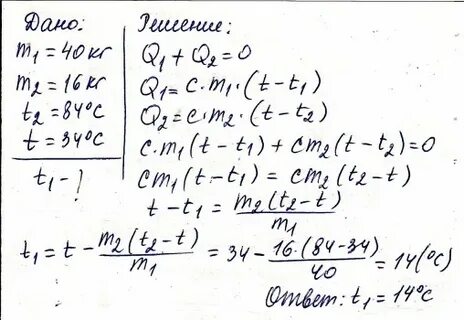 Дано:
m₁ = 40кг
m₂ = 16кг
t₂ = 84°С
t = 34°С
t₁ - ?
Решение:
Q₁ + Q₂ = 0
Q₁ = c·m₁·(t - t₁)
Q₂ = c·m₂·(t - t₂)
c·m₁(t - t₁) + cm₂(t - t₂) = 0
cm₁(t - t₁) = cm₂(t₂ - t)
t - t₁ = m₂(t₂ - t) / m₁
t₁ = t - m₂(t₂ - t) / m₁ = 34 - 16·(84 - 34) / 40 = 14(°С)
Ответ: t₁ = 14°С